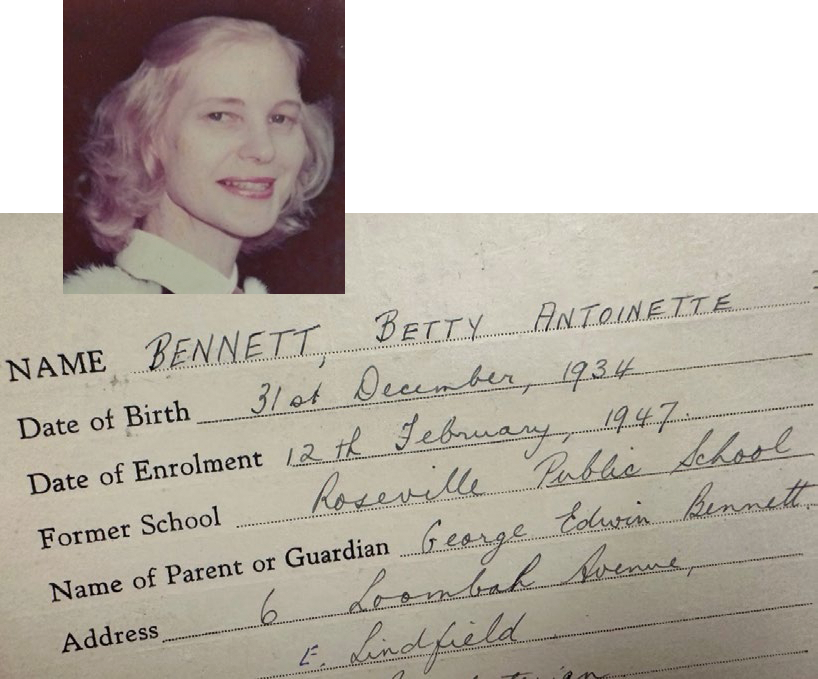 NAME BENNETT, BETTY ANTOINETTE
Date of Birth 31st December, 1934
Date of Enrolment 12th February, 1947.
Former School Roseville Public School
Name of Parent or Guardian George Edwin Bennett.
Address 6 Loombah Avenue,
E. Lindfield